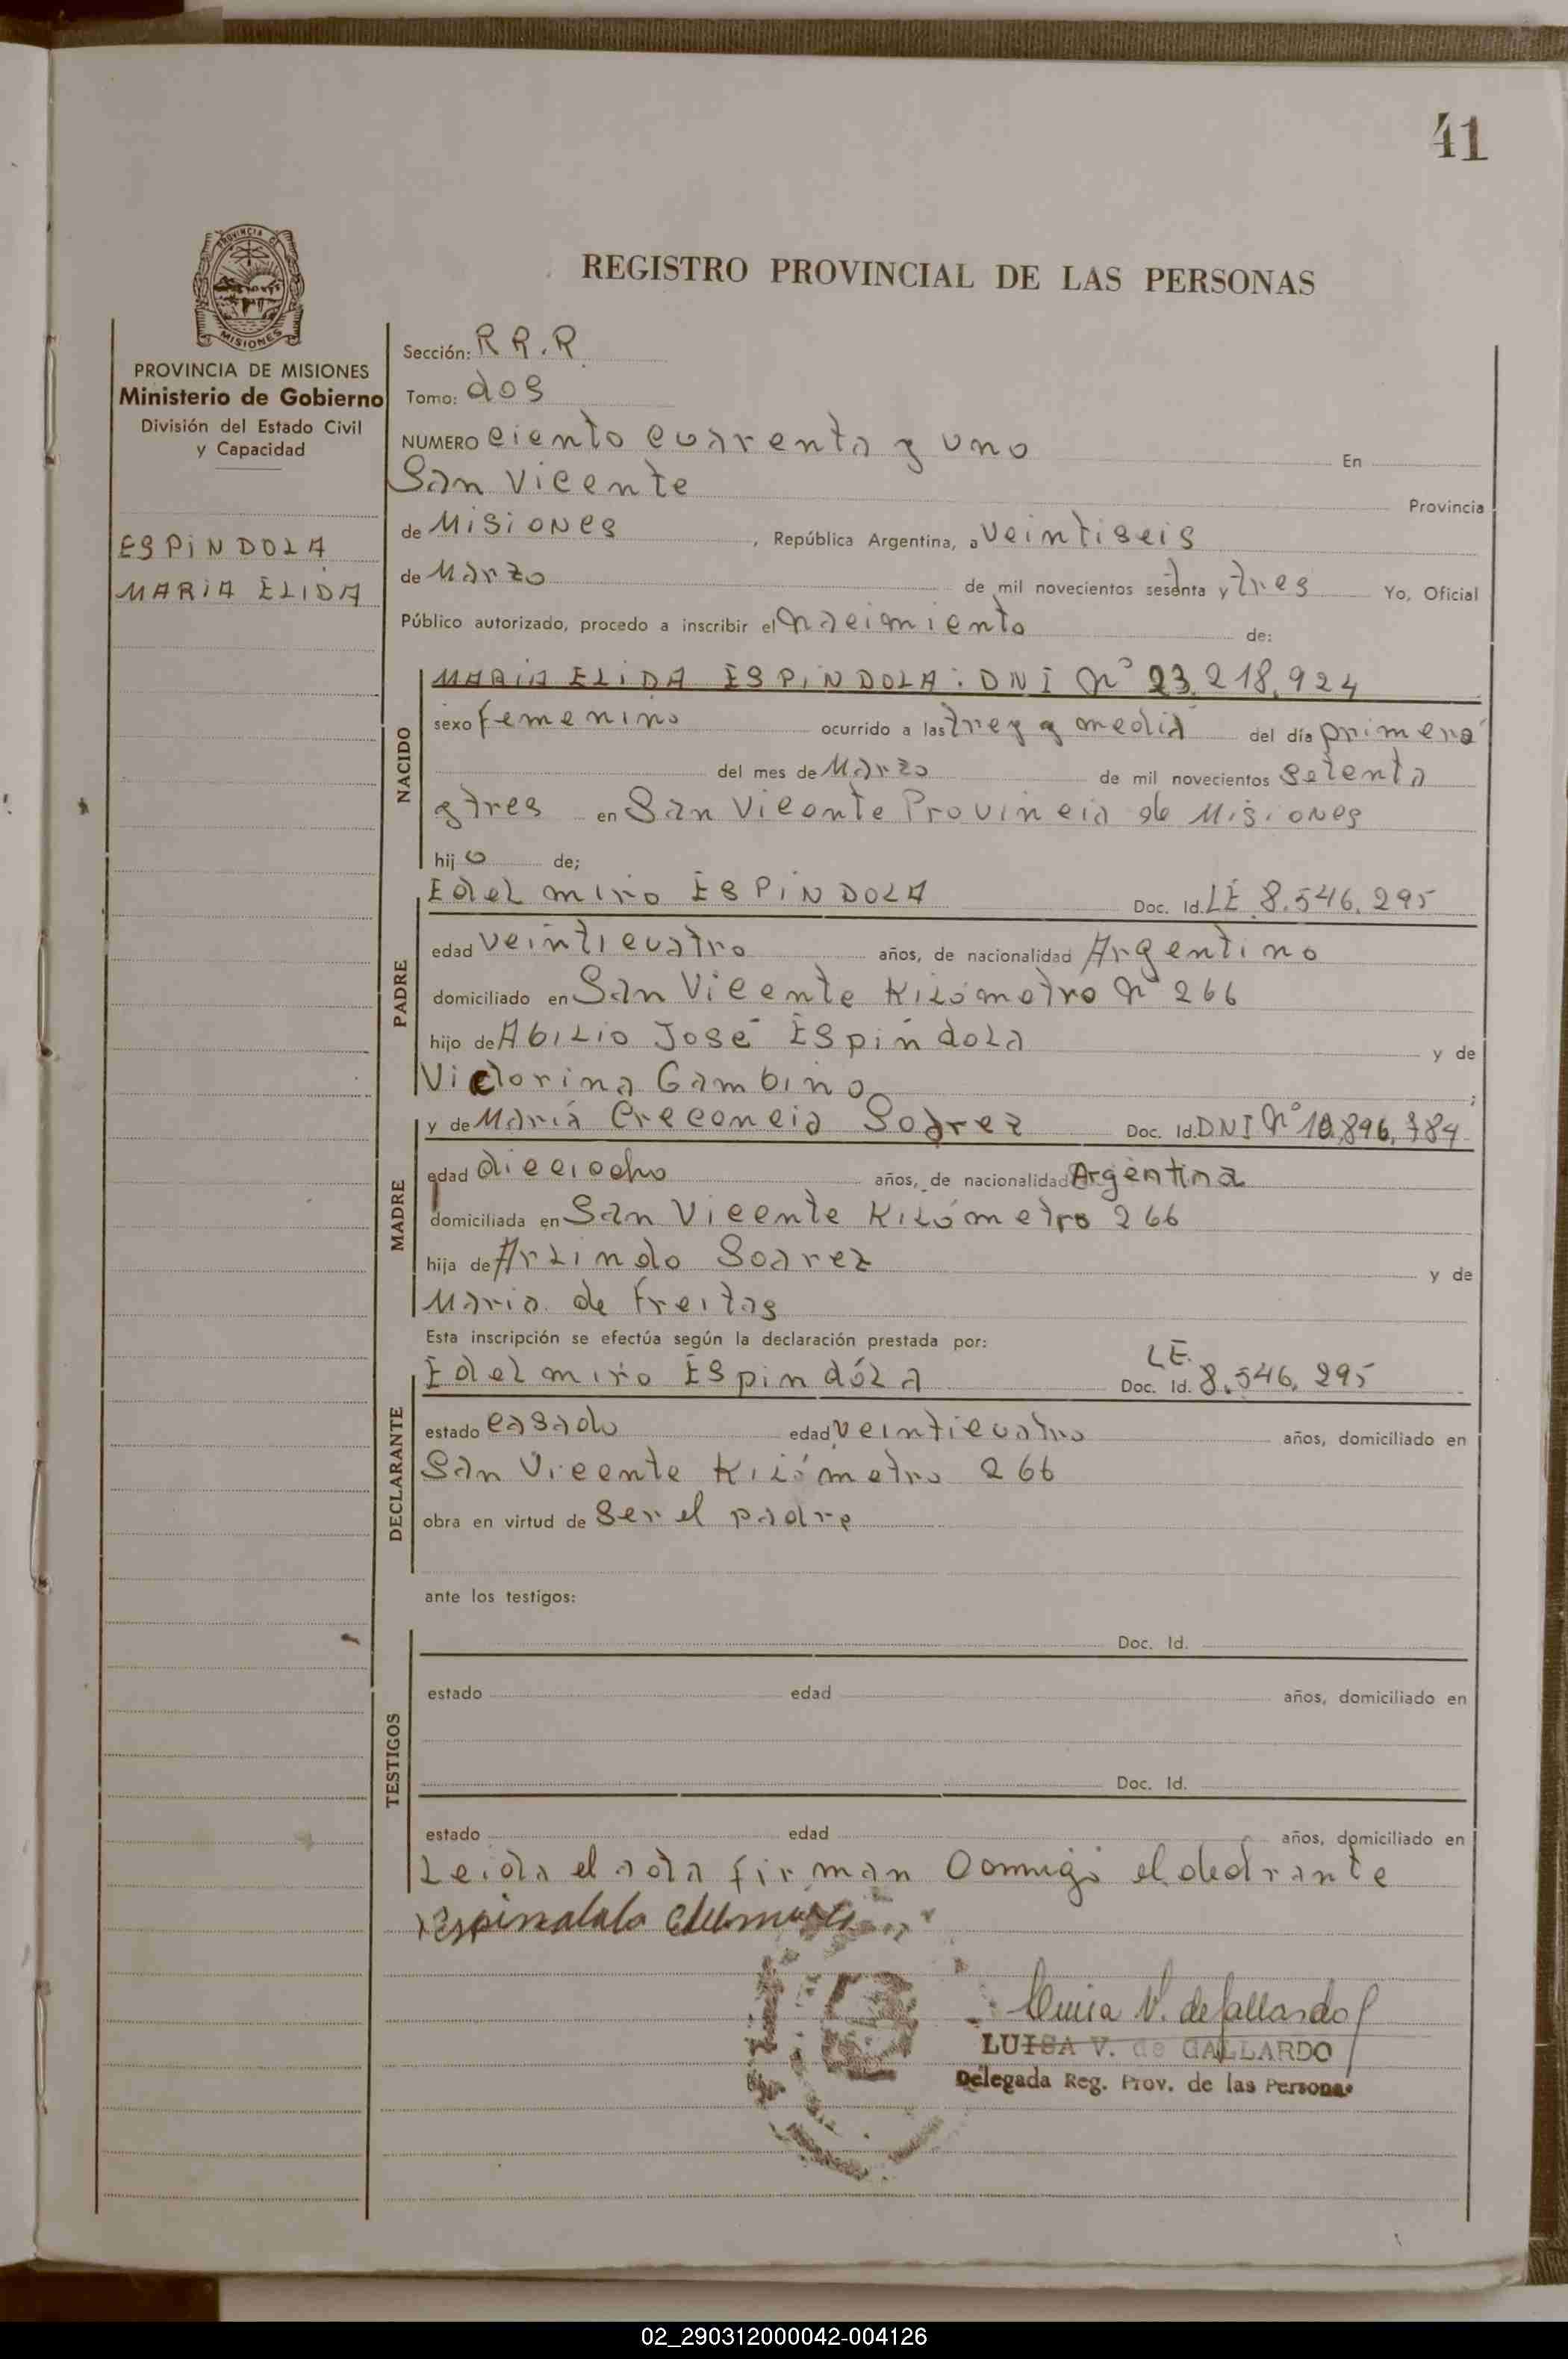 41
REGISTRO PROVINCIAL DE LAS PERSONAS
PROVINCIA DE MISIONES
Ministerio de Gobierno
División del Estado Civil
y Capacidad
ESPINDOLA
MARIA ELIDA
Sección: R R. R
Tomo: dos
NUMERO ciento cuarenta y uno En
San Vicente Provincia
de Misiones, República Argentina, a veintiseis
de Marzo de mil novecientos sesenta y tres Yo, Oficial
Público autorizado, procedo a inscribir el nacimiento de:
NACIDO
MARIA ELIDA ESPINDOLA. DNI Nº 23.218.924
sexo femenino ocurrido a las tres y media del día primero
del mes de Marzo de mil novecientos setenta
y tres en San Vicente Provincia de Misiones
hijo de;
PADRE
Edelmiro ESPINDOLA Doc. Id. LE 8.546.295
edad veinticuatro años, de nacionalidad Argentino
domiciliado en San Vicente Kilómetro Nº 266
hijo de Abilio José Espíndola y de
Victorina Gambino;
MADRE
y de María Creconcia Soarez Doc. Id. DNI Nº 10.896.784
edad dieciocho años, de nacionalidad Argentina
domiciliada en San Vicente Kilómetro 266
hija de Arlindo Soarez y de
Maria de Freitas
Esta inscripción se efectúa según la declaración prestada por:
DECLARANTE
Edelmiro Espindóla Doc. Id. LE. 8.546.295
estado casado edad veinticuatro años, domiciliado en
San Vicente Kilómetro 266
obra en virtud de ser el padre
ante los testigos:
TESTIGOS
Doc. Id.
estado edad años, domiciliado en
Doc. Id.
estado edad años, domiciliado en
Leida el acta firman Conmigo el declarante
Luisa V. de Gallardo
LUISA V. de GALLARDO
Delegada Reg. Prov. de las Personas
02_290312000042-004126